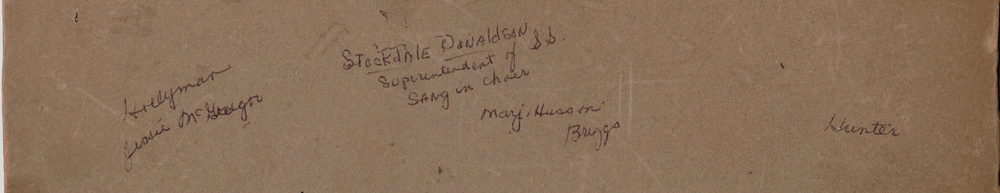 Hollyman
Jessie McGregor
STOCKDALE DONALDSON
Superintendent of S.S.
SANG in choir
Marj. Husson
Briggs
Hunter